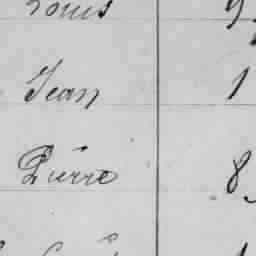 Louis 9
Jean 1
Pierre 8